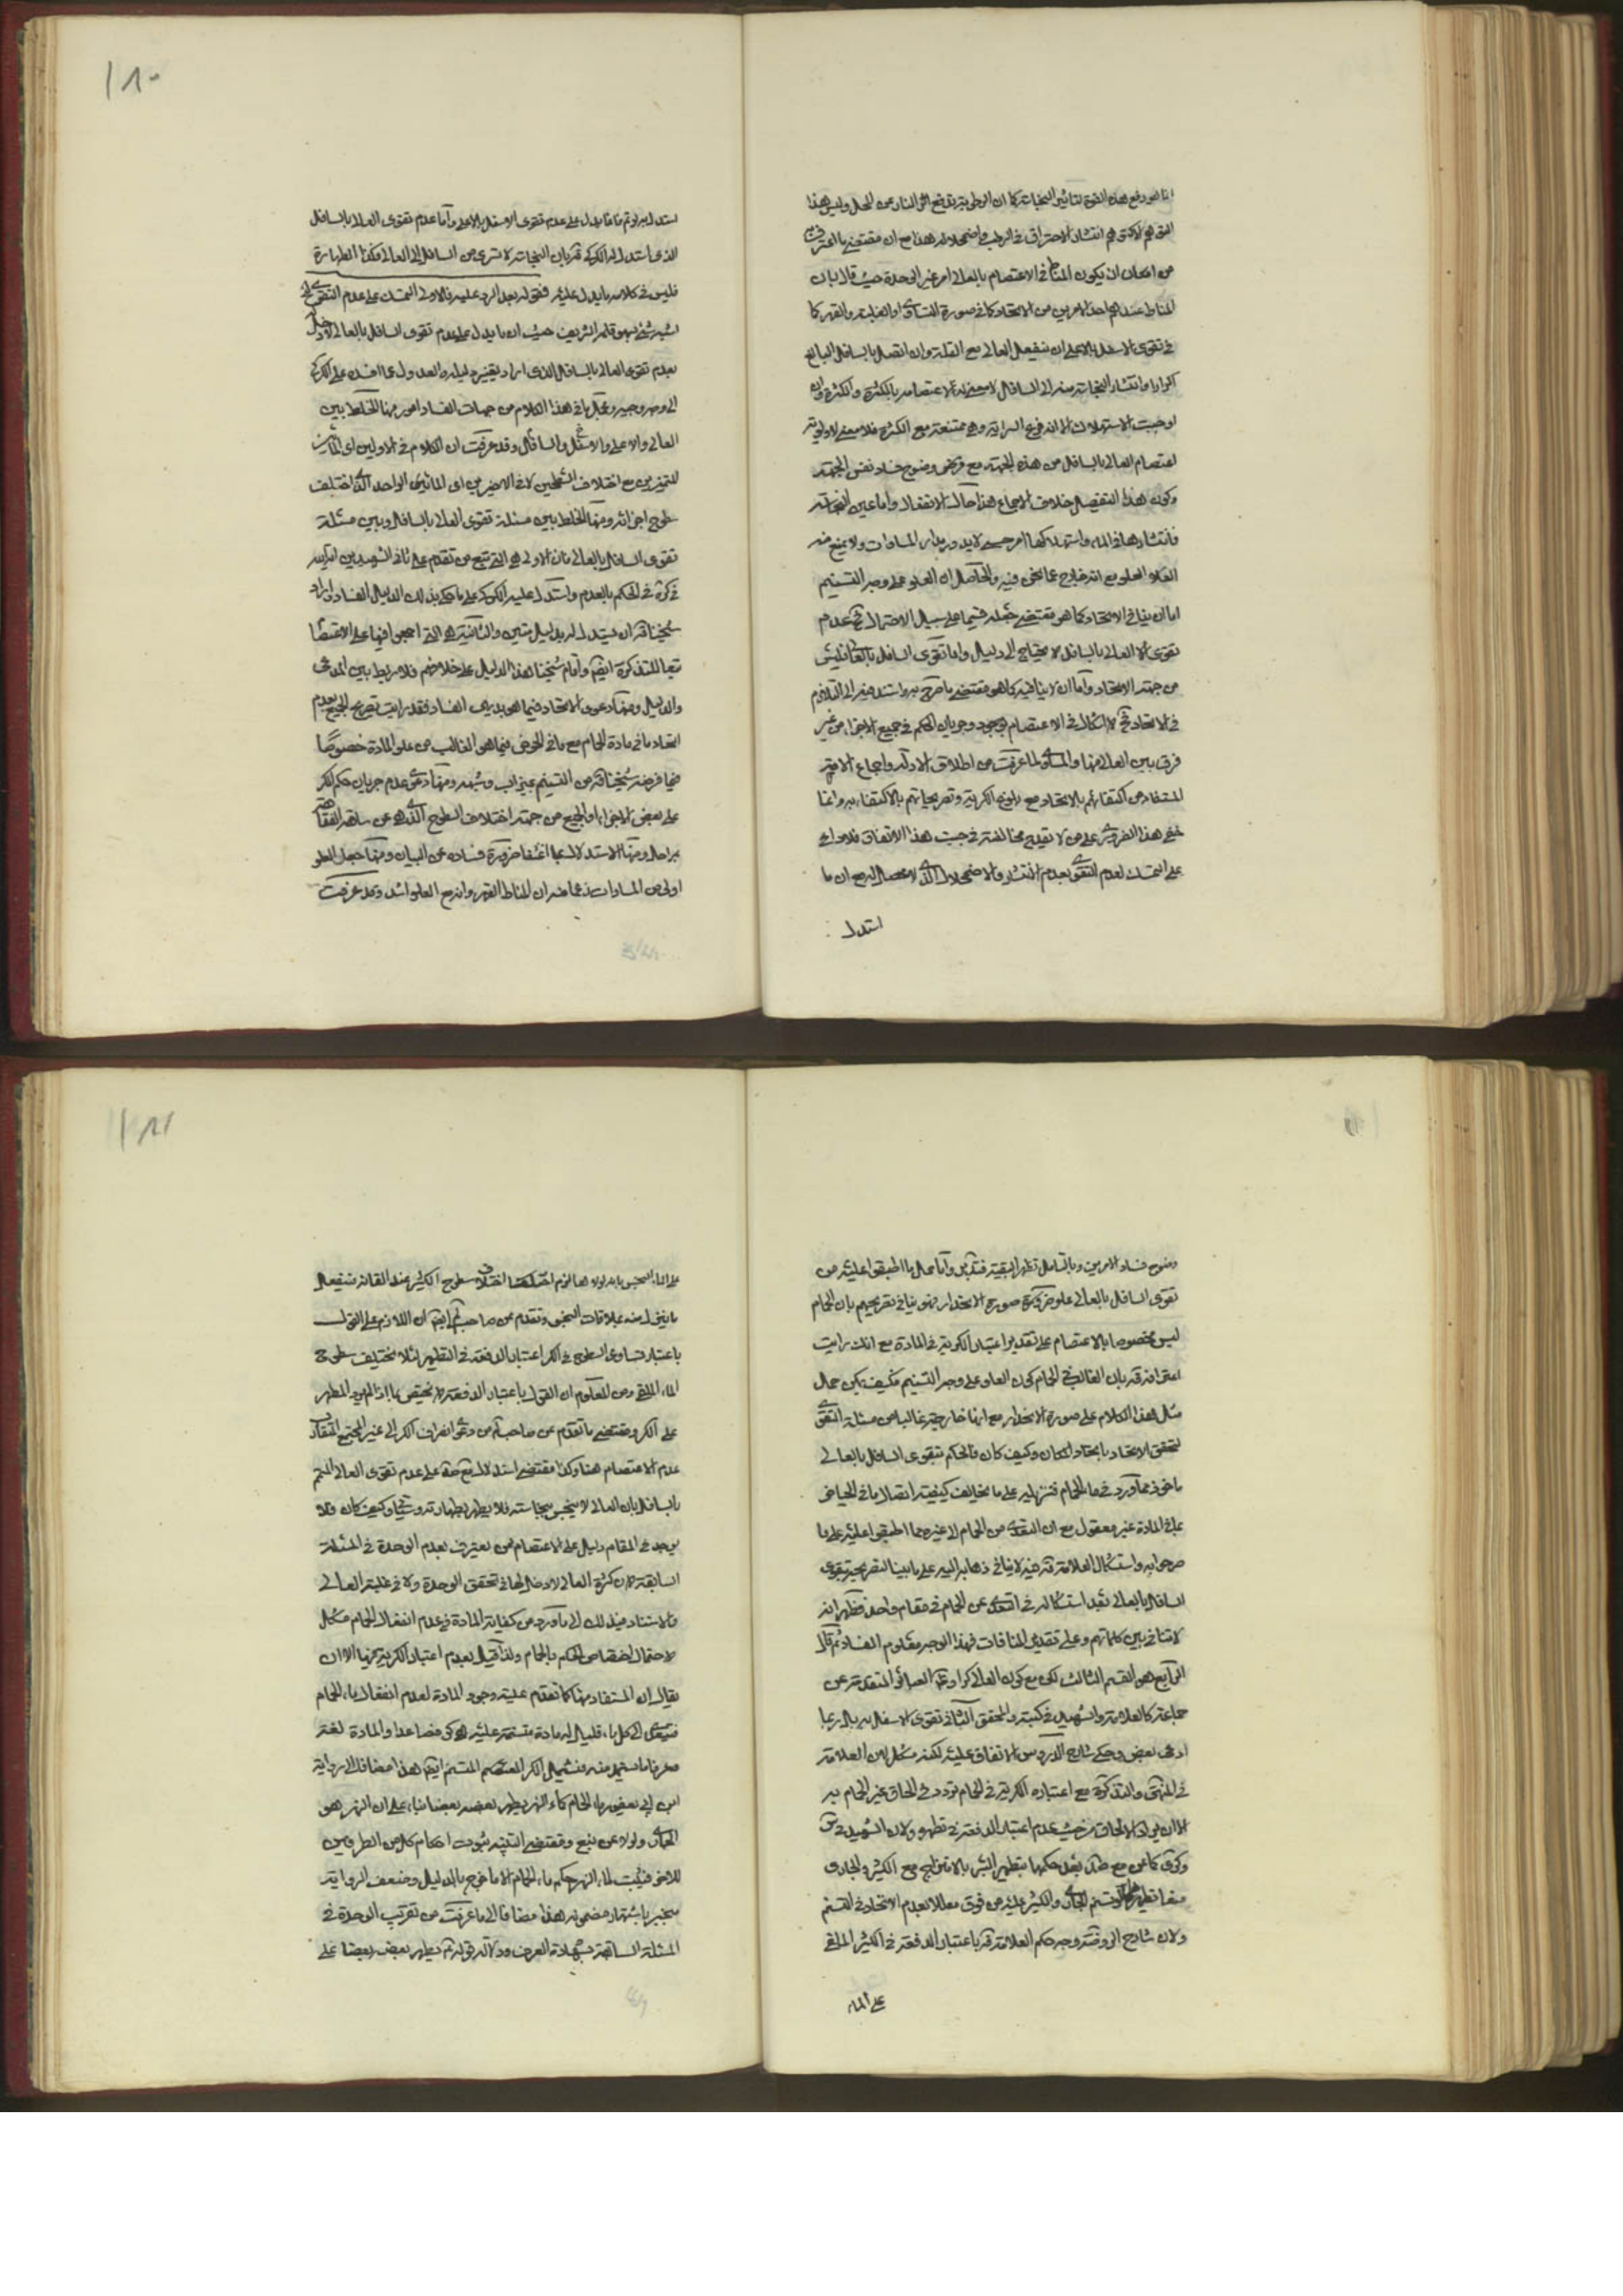 انما هو دفع هذه القوة لتأثير النجاسة كما ان الرطوبة تدفع اثر النار عن المحل وليس هذا
من امكان ان يكون المناط في الاعتصام بالعالي امر غير الوحدة حيث قال بان
المناط عندهم احد الامرين من الاتحاد كما في صورة التساوي او الغلبة والقهر كما
في تقوى الاسفل بالاعلى ان ينفعل العالي مع القلة وان اتصل بالسافل البالغ
اكرارا وانتشار النجاسة منه الى السافل لا معنى لاعتصامه بالكثرة والكثرة وان
اوجبت الاستهلاك الا انه فرع السراية وهي ممتنعة مع الكثرة فلا معنى لاولوية
اعتصام العالي بالسافل من هذه الجهة مع وضوح فساد نفس الجهة
وكون هذا التفصيل خلاف الاجماع هذا حال الانفعال واما عين النجاسة
فانتشارها في الماء واستهلاكها امر حسي لا يدور مدار المساوات ولا يمنع منه
العلو مع انه خارج عما نحن فيه والحاصل ان العلو على وجه التسنيم
اما ان ينافي الاتحاد كما هو مقتضى جعله قسيما على سبيل الاحتمال فح عدم
تقوى العالي بالسافل لا يحتاج الى دليل واما تقوى السافل بالعالي فليس
من جهة الاتحاد واما ان لا ينافيه كما هو مقتضى ما صرح به واستند فيه الى التلازم
في الاتحاد فح لا اشكال في الاعتصام لوجود وجريان الحكم في جميع الاجزاء من غير
فرق بين العالي منها والمساوي لما عرفت من اطلاق الادلة واجماع الامة
المستفاد من اكتفائهم بالاتحاد مع بلوغ الكرية وتصريحاتهم بالاكتفاء به وانما
خفي هذا الضروري على من لا تقدح مخالفته في جنب هذا الاتفاق فلا داعي
على التمسك لعدم التقوي بعدم انتشار والاضمحلال الذي لا محصل له مع ان ما
استدل
استدل به لو تم فانما يدل على عدم تقوى الاسفل بالاعلى واما عدم تقوى العالي بالسافل
الذي استدل له الكركي قده بان النجاسة لا تسري من السافل الى العالي فكذا الطهارة
فليس في كلامه ما يدل عليه فقوله بعد الرد عليه فالاولى التمسك على عدم التقوي
اشبه شيء بسهو قلمه الشريف حيث ان ما يدل على عدم تقوى السافل بالعالي لا دخل له
بعدم تقوى العالي بالسافل الذي اراد تغيير دليله والعدول عما افسده على الكركي
الى وجه وجيه وبالجملة ما في هذا الكلام من جهات الفساد امور منها الخلط بين
العالي والاعلى والاسفل والسافل وقد عرفت ان الكلام في الاولين اي المائين
المتميزين مع اختلاف السطحين لا في الاخيرين اي المائين الواحد الذي اختلف
سطوح اجزائه ومنها الخلط بين مسئلة تقوى العالي بالسافل وبين مسئلة
تقوى السافل بالعالي فان الاولى هي التي تبع من تقدم على ثاني الشهيدين
ذكره في الحكم بالعدم واستدل عليه الكركي على ما حكي بذلك الدليل الفساد واراد
شيخنا قده ان يستدل له بدليل متين والثانية هي التي اجمعوا فيها على الاعتصام
تبعا للتذكرة ايضا واقام شيخنا هذا الدليل على خلافهم فلا ربط بين المدعى
والدليل ومنها دعوى الاتحاد فيما هو بديهي الفساد فقد رايت تصريح الجميع بعدم
اتحاد ما في مادة الحمام مع ما في الحوض فيما هو الغالب من علو المادة خصوصا
فيما فرضه شيخنا قده من التسنيم بميزاب وشبهه ومنها دعوى عدم جريان حكم الكر
على بعض الاجزاء او الجميع من جهة اختلاف السطوح
براحل ومنها الاستدلال بما اغنتنا ضرورة فساده عن البيان ومنها جعل العلو
اولى من المساوات زعما منه ان المناط القهر وانه مع العلو اشد وقد عرفت
وضوح فساد الامرين وبالتأمل تظهر البقية فتدبر واما حمل ما اطبقوا عليه من
تقوى السافل بالعالي على خصوص صورة الانحدار فهو ينافي تصريحهم بان الحمام
ليس مخصوصا بالاعتصام على تقدير اعتبار الكرية في المادة مع انك رايت
اعترافه قده بان الغالب في الحمام كون العلو على وجه التسنيم فكيف يمكن حمل
مثل هذا الكلام على صورة الانحدار مع انها خارجة غالبا من مسئلة التقوي
لتحقق الاتحاد باتحاد المكان وكيف كان فالحكم بتقوى السافل بالعالي
ماخوذ مما ورد في ماء الحمام فتنزيله على ما يخالف كيفية اتصال ما في الحياض
بما في المادة غير معقول مع ان التعدي من الحمام الى غيره مما اطبقوا عليه على ما
صرحوا به واستشكال العلامة قده فيه لا ينافي ذهابه اليه على ما بينا التصريح بتقوى
السافل بالعالي بعد استشكاله في التعدي عن الحمام في مقام واحد فظهر انه
لا تنافي بين كلماتهم وعلى تقدير المنافات فهذا الوجه معلوم الفساد ثم قال
الرابع هو القسم الثالث لكن مع كون العالي كرا وعموم العبائر المتقدمة عن
جماعة كالعلامة والشهيد في كتبه والمحقق الثاني تقوى الاسفل به بل ربما
ادعى بعض وحكي شارح الدروس الاتفاق عليه لكنه مشكل لان العلامة
في المنتهى والتذكرة مع اعتباره الكرية في الحمام تردد في الحاق غير الحمام به
الا ان يراد الالحاق من حيث عدم اعتبار الدفعة في تطهيره ولان الشهيد في س
وكرى كما عن مع صد بعد حكمهما بتطهير البئر بالامتزاج مع الكثير والجاري
منعا تطهيره لو تسنم الجاري والكثير عليه من فوق معللا بعدم الاتحاد في التسنم
ولان شارح الروضة وجه حكم العلامة قده باعتبار الدفعة في الكثير الملقى
على الماء
على الماء النجس بانه لولاها لزم اختلاف سطوح الكثير عند القائه فينفعل
ما ينزل منه بملاقات النجس وتقدم عن صاحب لم ايضا ان اللازم على القول
باعتبار تساوي السطوح في الكر اعتبار الدفعة في التطهير لئلا يختلف سطوح
الماء الملقى ومن المعلوم ان القول باعتبار الدفعة لا يختص بما اذا لم يزد المطهر
على الكر ومقتضى ما تقدم عن صاحب لم من دعوى انصراف الكر الى غير المجتمع المتقارب
عدم الاعتصام هنا وكذا مقتضى استدلال مع صد على عدم تقوى العالي المتسنم
بالسافل بان العالي لا ينجس بنجاسته فلا يطهر بطهارته وكيف كان فلا
يوجد في المقام دليل على الاعتصام لمن يعترف بعدم الوحدة في المسئلة
السابقة لان كثرة العالي لا دخل لها في تحقق الوحدة ولا في غلبة العالي
والاستناد في ذلك الى ما ورد من كفاية المادة في عدم انفعال الحمام مشكل
لاحتمال اختصاص الحكم بالحمام ولذا قيل بعدم اعتبار الكرية فيها الا ان
يقال ان المستفاد منها كما تقدم علية وجود المادة لعدم انفعال ماء الحمام
فيتعدى الى كل ماء قليل له مادة متسنمة عليه هي كر فصاعدا والمادة لغة
وعرفا ما يستمد منه فيشمل الكر المتسنم ايضا هذا مضافا الى رواية
ابن ابي يعفور ماء الحمام كماء النهر يطهر بعضه بعضا بناء على ان النهر هو
الجاري ولو لا عن نبع ومقتضى التشبيه ثبوت احكام كل من الطرفين
للاخر فيثبت لماء النهر حكم ماء الحمام الا ما خرج بالدليل وضعف الرواية
منجبر باشتهار مضمونه هذا مضافا الى ما عرفت من تقريب الوحدة في
المسئلة السابقة بشهادة العرف ودلالة قوله ع يطهر بعضه بعضا على